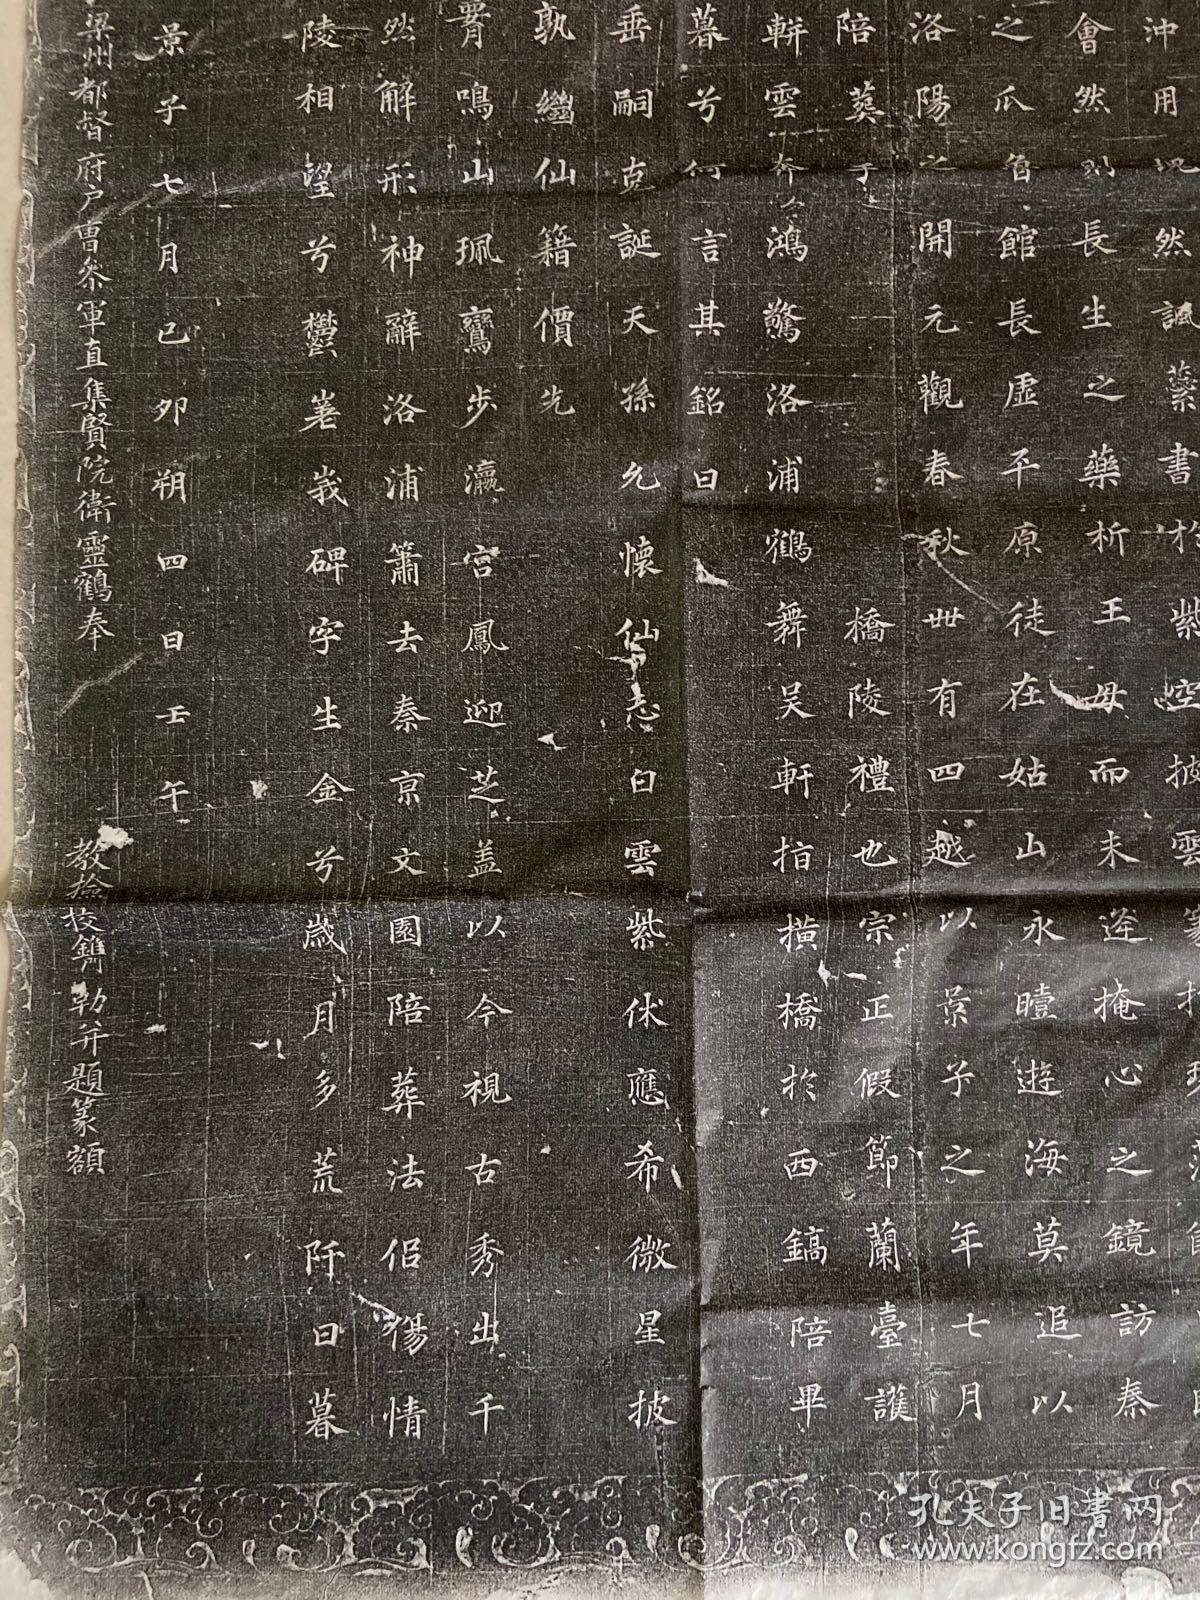 沖用怳然諷蘂書於紫空披雲篆於
會然則長生之藥析王母而未逢掩心之鏡訪秦
之爪自館長虛平原徒在姑山永曀遊海莫追以
洛陽之開元觀春秋卌有四越以景子之年七月
陪葬于橋陵禮也宗正假節蘭臺護
輧雲奔鴻驚洛浦鶴舞吴軒指橫橋於西鎬陪畢
暮兮何言其銘曰
垂嗣克誕天孫允懷仙志白雲紫伏應希微星披
孰繼仙籍價先
要鳴山珮鸞步瀛宫鳳迎芝盖以今視古秀出千
然解形神辭洛浦簫去秦京文園陪葬法侣傷情
陵相望兮欝嵬峩碑字生金兮歲月多荒阡日暮
景子七月己夘朔四日壬午
梁州都督府户曹叅軍直集賢院衛靈鶴奉教撿挍鐫勒并題篆額
孔夫子旧書网
www.kongfz.com